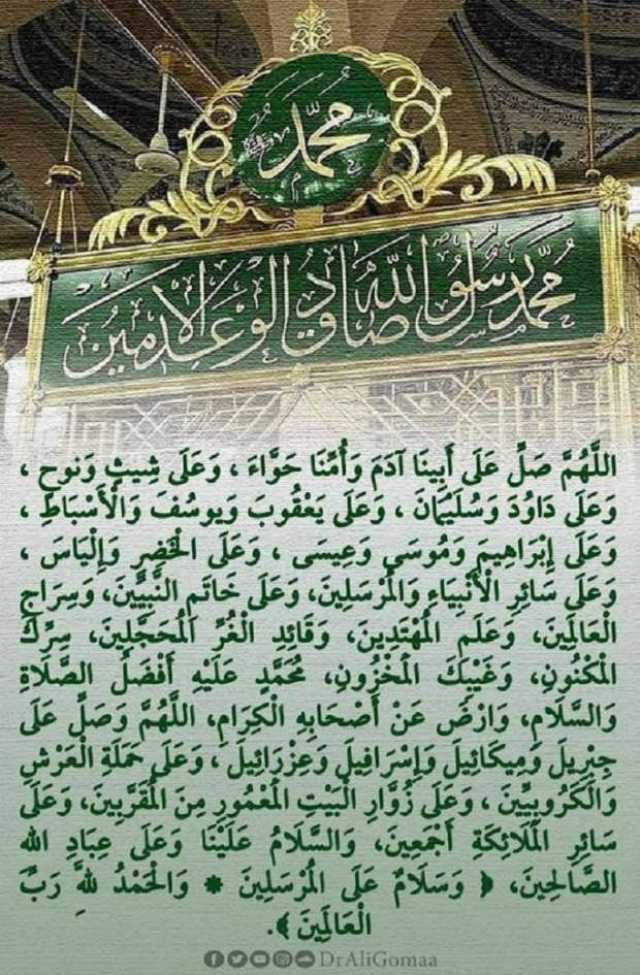 محمد
ﷺ
محمد رسول الله صادق الوعد الأمين
اللَّهُمَّ صَلِّ عَلَى أَبِينَا آدَمَ وَأُمِّنَا حَوَّاءَ ، وَعَلَى شِيثٍ وَنوحٍ ،
وَعَلَى دَاوُدَ وَسُلَيْمَانَ ، وَعَلَى يَعْقُوبَ وَيوسُفَ وَالْأَسْبَاطِ ،
وَعَلَى إِبْرَاهِيمَ وَمُوسَى وَعِيسَى ، وَعَلَى الْخَضِرِ وَإِلْيَاسَ ،
وَعَلَى سَائِرِ الْأَنْبِيَاءِ وَالْمُرْسَلِينَ، وَعَلَى خَاتَمِ النَّبِيِّينَ، وَسِرَاجِ
الْعَالَمِينَ، وَعَلَمِ الْمُهْتَدِينَ، وَقَائِدِ الْغُرِّ الْمُحَجَّلِينَ، سِرِّكَ
الْمَكْنُونِ، وَغَيْبِكَ الْمَخْزُونِ، مُحَمَّدٍ عَلَيْهِ أَفْضَلُ الصَّلَاةِ
وَالسَّلَامِ، وَارْضَ عَنْ أَصْحَابِهِ الْكِرَامِ، اللَّهُمَّ وَصَلِّ عَلَى
جِبْرِيلَ وَمِيكَائِيلَ وَإِسْرَافِيلَ وَعِزْرَائِيلَ ، وَعَلَى حَمَلَةِ الْعَرْشِ
وَالْكَرُوبِيِّينَ ، وَعَلَى زُوَّارِ الْبَيْتِ الْمَعْمُورِ مِنَ الْمُقَرَّبِينَ، وَعَلَى
سَائِرِ الْمَلَائِكَةِ أَجْمَعِينَ، وَالسَّلَامُ عَلَيْنَا وَعَلَى عِبَادِ الله
الصَّالِحِينَ، ﴿ وَسَلَامٌ عَلَى الْمُرْسَلِينَ * وَالْحَمْدُ لِلَّهِ رَبِّ
الْعَالَمِينَ ﴾.
DrAliGomaa